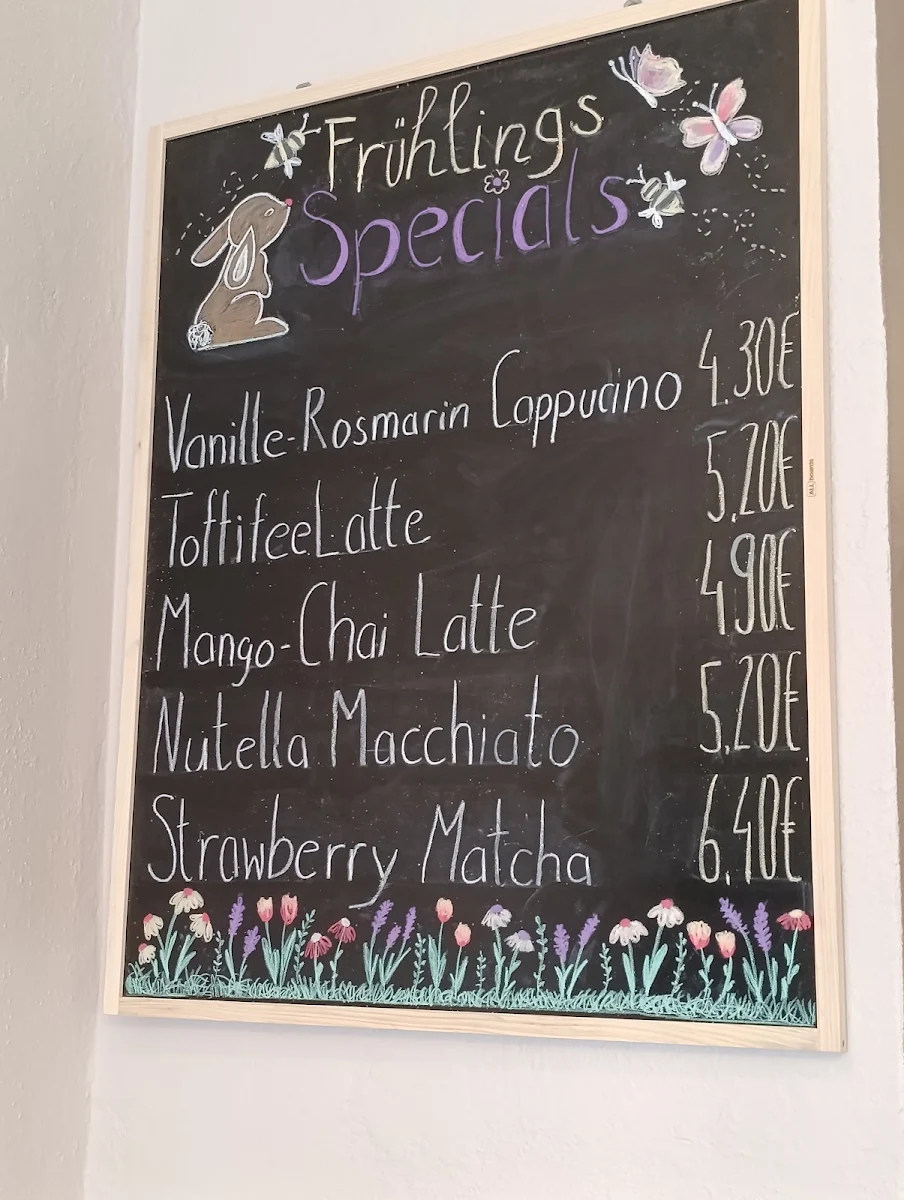 Frühlings
Specials
Vanille-Rosmarin Cappucino 4.30€
ToffifeeLatte 5,20€
Mango-Chai Latte 4,90€
Nutella Macchiato 5,20€
Strawberry Matcha 6,40€
ALLboards